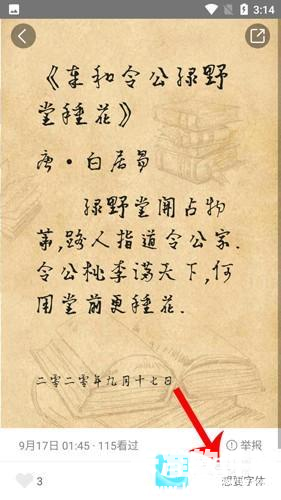 3:14
《奉和令公绿野
堂種花》
唐·白居易
绿野堂開占物
華,路人指道令公家.
令公桃李满天下,何
用堂前更種花.
二零二零年九月十七日
9月17日 01:45 · 115看过
举报
3
想要字体